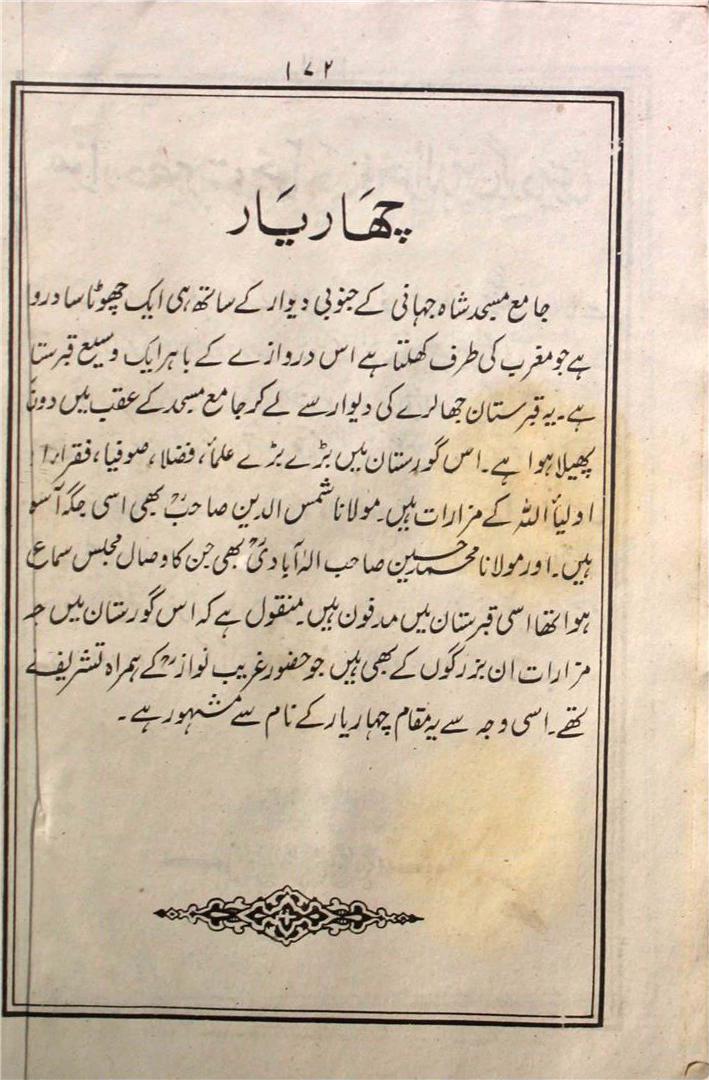 ۱۷۲
چھَار یَار
جامع مسجد شاہ جہانی کے جنوبی دیوار کے ساتھ ہی ایک چھوٹا سا درو
ہے جو مغرب کی طرف کھلتا ہے اس دروازے کے باہر ایک وسیع قبرستا
ہے۔ یہ قبرستان جھالرے کی دیوار سے لے کر جامع مسجد کے عقب میں دور
پھیلا ہوا ہے۔ اس گورستان میں بڑے بڑے علمأ، فضلا، صوفیا، فقرا
اولیأ اللہ کے مزارات ہیں۔ مولانا شمس الدین صاحبؒ بھی اسی جگہ آسو
ہیں۔ اور مولانا محمد حسین صاحب الہٰ آبادیؒ بھی جن کا وصال مجلس سماع
ہوا تھا اسی قبرستان میں مدفون ہیں۔ منقول ہے کہ اس گورستان میں
مزارات ان بزرگوں کے بھی ہیں جو حضور غریب نوازؒ کے ہمراہ تشریف
تھے۔ اسی وجہ سے یہ مقام چہار یار کے نام سے مشہور ہے۔